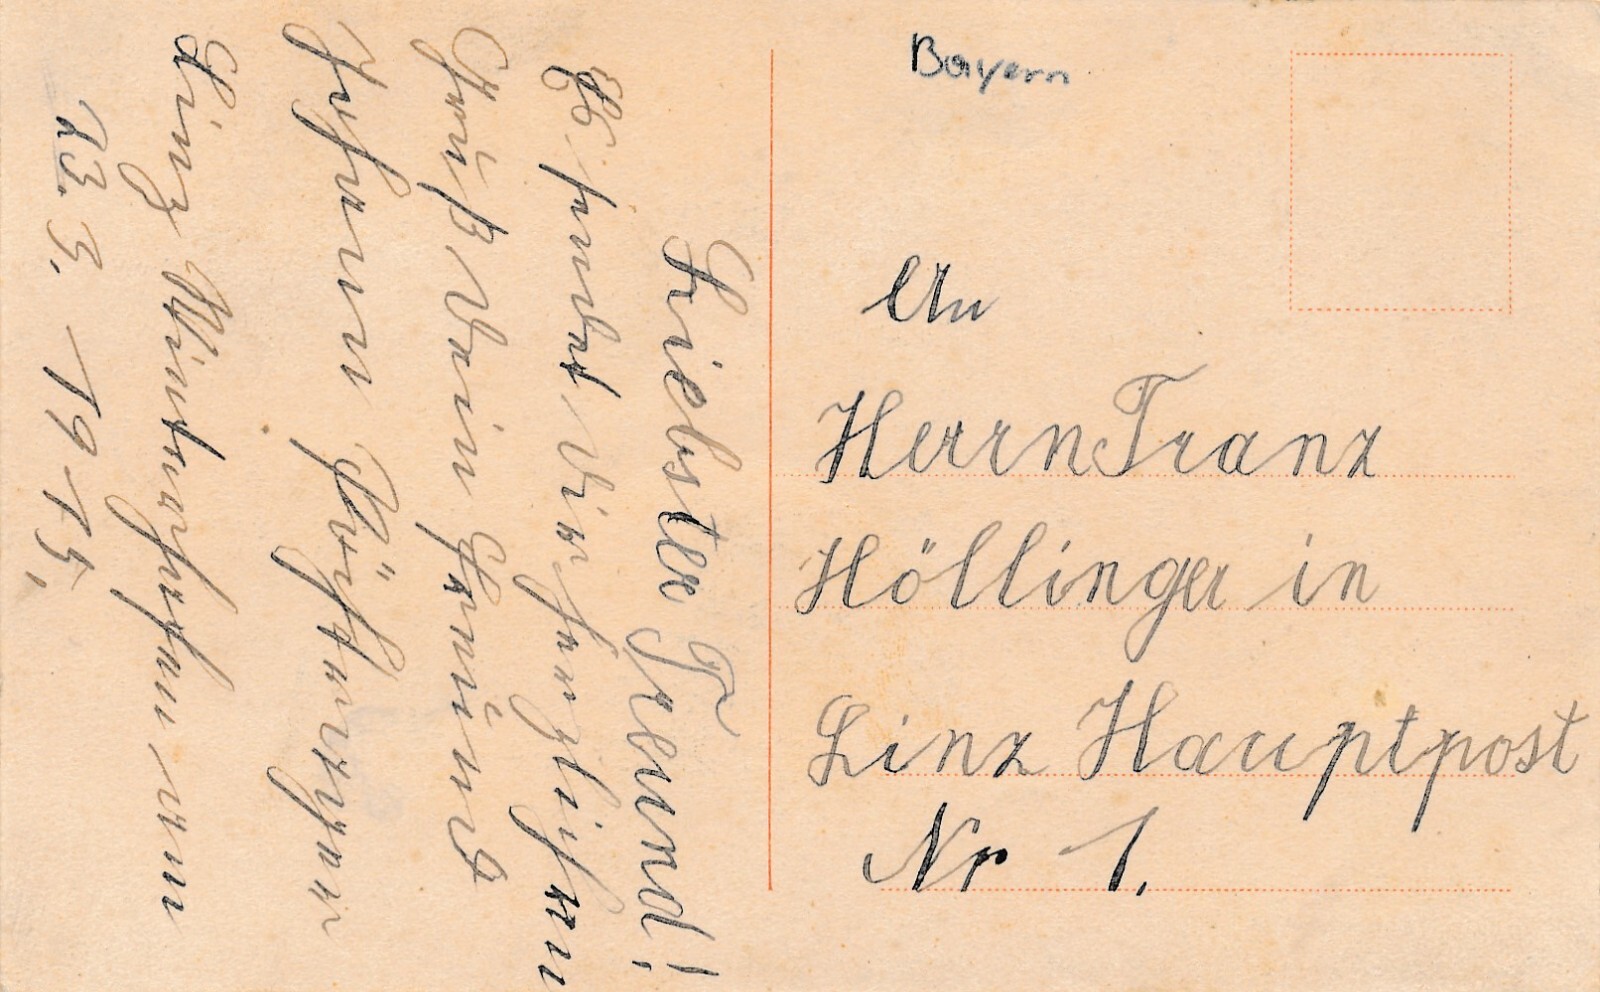 Bayern
An
Herrn Franz
Höllinger in
Linz Hauptpost
Nr 1.
Liebster Freund!
Es sendet Dir herzlichen
Gruß Dein Freund
Johann
Linz
23. 3. 1915.